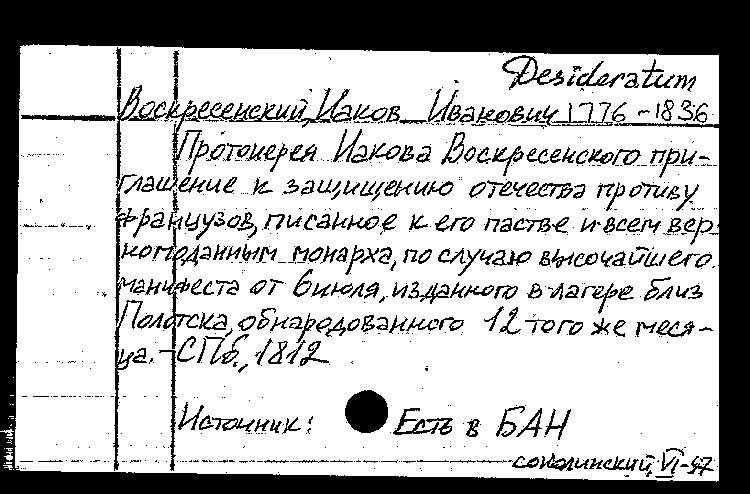 Desideratum
Воскресенский, Иаков Иванович 1776-1836
Протоиерея Иакова Воскресенского при-
глашение к защищению отечества противу
французов, писанное к его пастве и всем вер-
ноподанным монарха, по случаю высочайшего
манифеста от 6 июля, изданного в лагере близ
Полотска, обнародованного 12 того же меся-
ца. - СПб., 1812
Источник: Есть в БАН